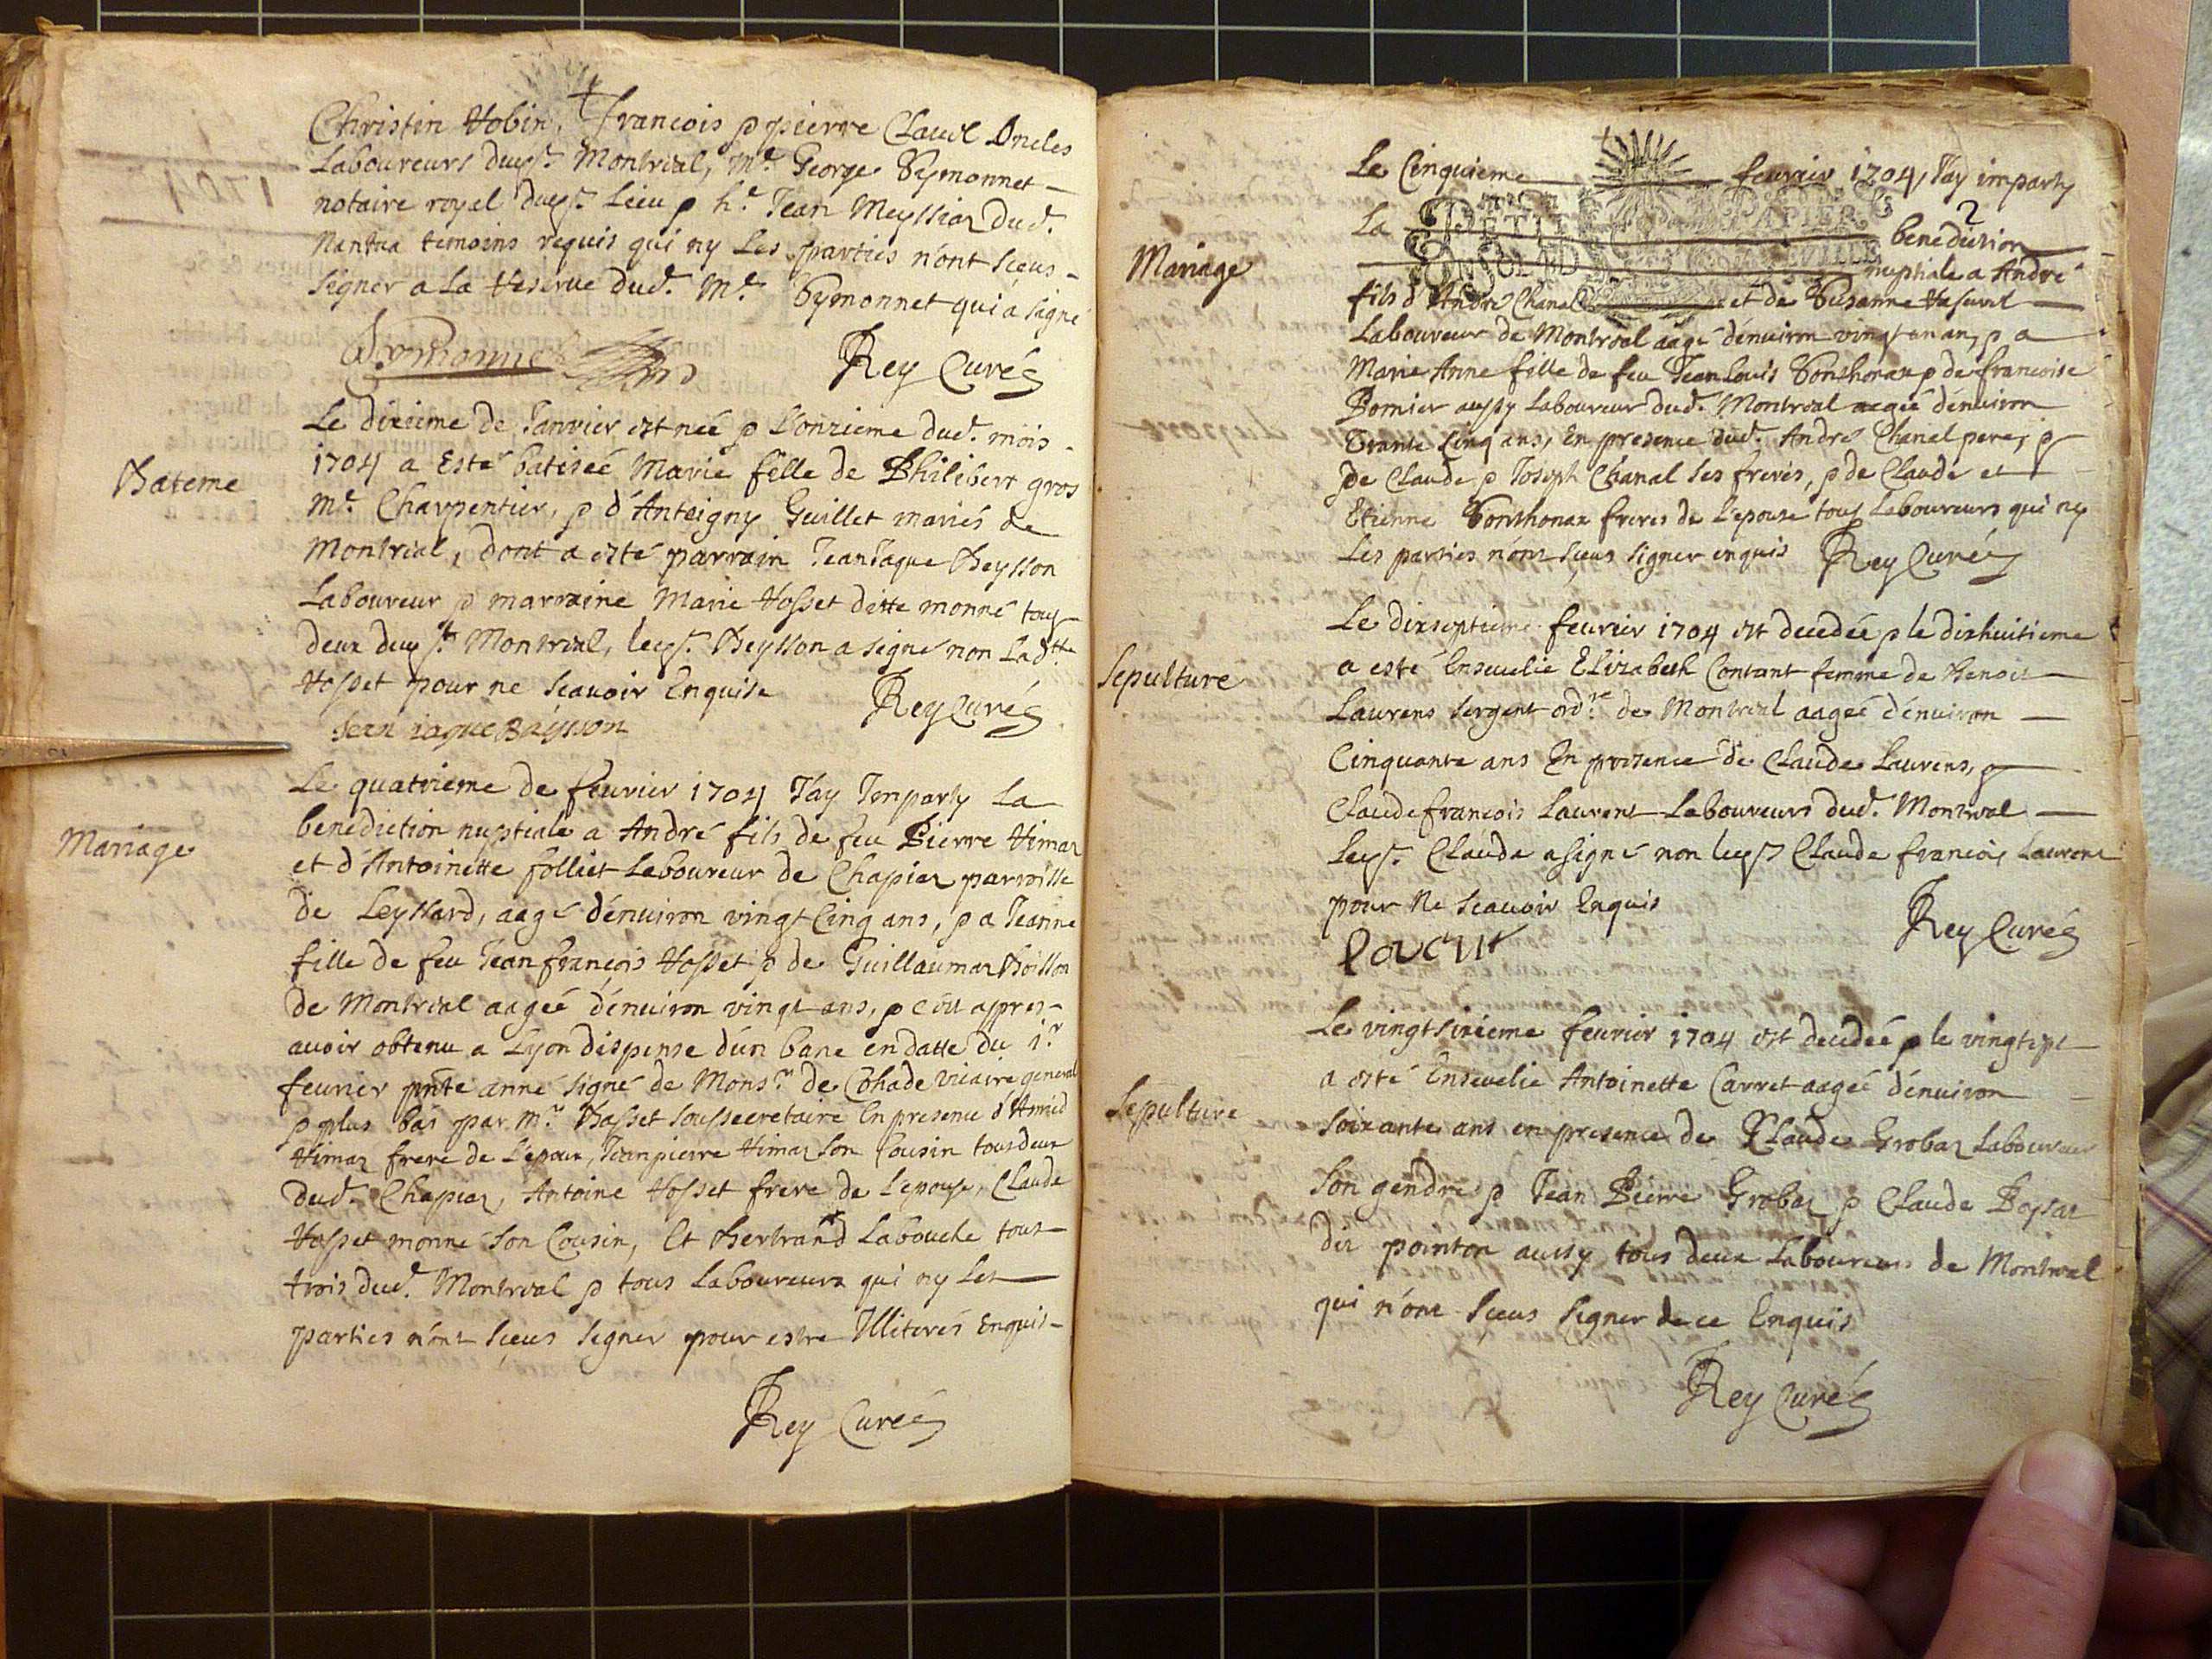 Christin Vobin, François p pierre Clavel Oncles
Laboureurs duqs.r Montreal, M.e George Symonnet
notaire royal duqs.r Lieu p h.e Jean Meyssiaz dud.
Nantua temoins requis qui ny Les parties n'ont sceus
signer a La Reserve dud. M.e Symonnet qui a signé
Symonnet
Rey Curé
Bateme
Le dixieme de Janvier est neé p L'onzieme dud. mois
1704 a Esté batiseé Marie fille de Philibert gros
M.e Charpentier, p d'Anteigny Guillet mariés de
Montreal, dont a esté parrain Jean Jaque Beysson
Laboureur p marraine Marie Vosset ditte monne tous
deux duqs.t Montreal, leqs. Beysson a signé non Lad.tte
Vosset pour ne scauoir Enquise
Rey Curé
Jean iaque Baysson
Mariage
Le quatrieme de feurier 1704 J'ay Jmparty La
benediction nuptiale a André fils de feu Pierre Vimaz
et d'Antoinette folliet Laboureur de Chapiaz parroisse
de Leyssard, aagé d'enuiron vingt Cinq ans, p a Jeanne
fille de feu Jean françois Vosset p de Guillaumaz Boisson
de Montreal aageé d'enuiron vingt ans, p c'est appres
auoir obtenu a Lyon dispense d'un banc en datte du 1.r
feurier pnte anné signé de Mons.r de Cohade vicaire general
p plus bas par M.r Basset soussecretaire En presence d'Amied
Vimaz frere de L'epoux, Jean pierre Vimaz son Cousin tous deux
dud. Chapiaz, Antoine Vosset frere de L'epouse, Claude
Vosset monne son Cousin, Et Bertrand Labouche tous
trois dud. Montreal p tous Laboureurs qui ny Les
parties n'ont sceus signer pour estre Illiterés Enquis
Rey Curé
2
Mariage
Le Cinquieme feurier 1704 J'ay imparty
La benediction
PETIT PAPIER
nuptiale a André
fils d'André Chanel et de Susanne
Laboureur de Montreal aagé d'enuiron vingt un an, p a
Marie Anne fille de feu Jean Louis Sonthonax p de francoise
Bornier aussy Laboureur dud. Montreal aageé d'enuiron
trante Cinq ans, En presence dud. André Chanel pere, p
de Claude p Joseph Chanal ses freres, p de Claude et
Etienne Sonthonax freres de L'epouse tous Laboureurs qui ny
Les parties n'ont sceus signer enquis Rey Curé
Sepulture
Le dixseptieme feurier 1704 est decedeé p le dixhuitieme
a esté Enseuelie Elizabeth Contant femme de Benoit
Laurens sergent ord.re de Montreal aageé d'enuiron
Cinquante ans En presence de Claude Laurens, p
Claude françois Laurent Laboureurs dud. Montreal
Leqs.r Claude a signé non leqs. Claude françois Laurent
pour ne scauoir Enquis
Rey Curé
Sepulture
Le vingtsixieme feurier 1704 est decedeé p le vingtsept
a esté Enseuelie Antoinette Carret aageé d'enuiron
soixante ans en presence de Claude Grobaz Laboureur
son gendre p Jean Pierre Grobaz p Claude Boysat
dit pointon aussy tous deux Laboureurs de Montreal
qui n'ont sceus signer de ce Enquis
Rey Curé